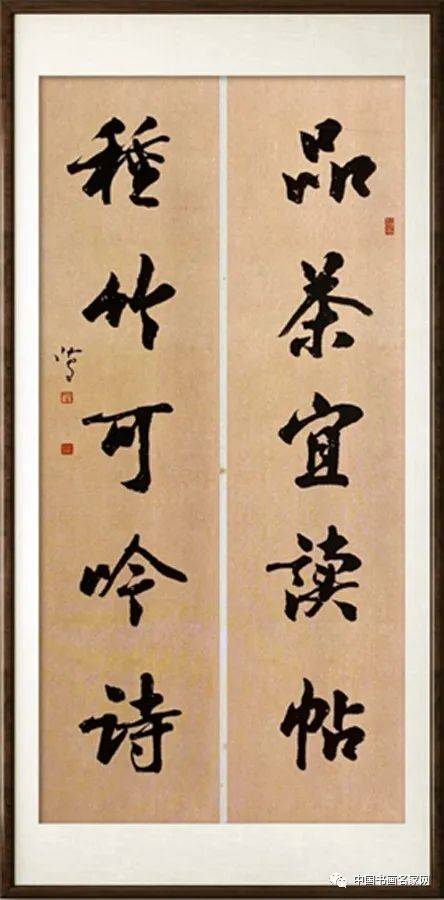 品茶宜读帖
種竹可吟诗
中国书画名家网